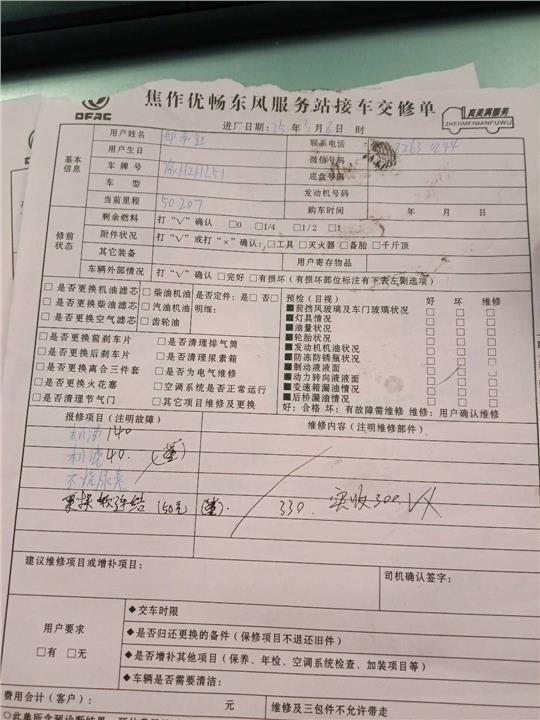 DFAC
焦作优畅东风服务站接车交修单
真美满服务
ZHENMEIMANFUWU
进厂日期：25年5月6日 时
基本信息
用户姓名
联系电话
用户生日
微信号码
车牌号
底盘号码
车型
发动机号码
当前里程 50207
购车时间 年 月 日
修前状态
剩余燃料 打“√”确认 □0 □1/4 □1/2 □1
附件状况 打“√”或打“×”确认：□工具 □灭火器 □备胎 □千斤顶
其它装备
用户寄存物品
车辆外部情况 打“√”确认 □完好 □有损坏（有损坏部位标注有下表左侧选项）
□是否更换机油滤芯 □柴油机油 是否定件：是□否□
□是否更换柴油滤芯 □汽油机油 明细：
□是否更换空气滤芯 □齿轮油
□是否更换前刹车片 □是否清理排气筒
□是否更换后刹车片 □是否清理尿素箱
□是否更换离合三件套 □是否为电气维修
□是否更换火花塞 □空调系统是否正常运行
□是否清理节气门 □其它项目维修及更换
预检（目视） 好 坏 维修
■前挡风玻璃及车门玻璃状况 □ □ □
■灯具情况 □ □ □
■油量状况 □ □ □
■轮胎状况 □ □ □
■发动机机油状况 □ □ □
■防冻防锈瓶状况 □ □ □
■制动液液面 □ □ □
■动力转向液液面 □ □ □
■变速箱漏油情况 □ □ □
■后桥漏油情况 □ □ □
好：合格 坏：有故障需维修 维修：用户确认维修
报修项目（注明故障）
维修内容（注明维修部件）
机油 140
机滤 40.
不烧尿素
更换软连结 150元
330. 实收300. VX
建议维修项目或增补项目：
司机确认签字：
用户要求
□有 □无
◆交车时限
◆是否归还更换的备件（保修项目不退还旧件）
◆是否增补其他项目（保养、年检、空调系统检查、加装项目等）
◆车辆是否需要清洁：
费用合计（客户）： 元
维修及三包件不允许带走